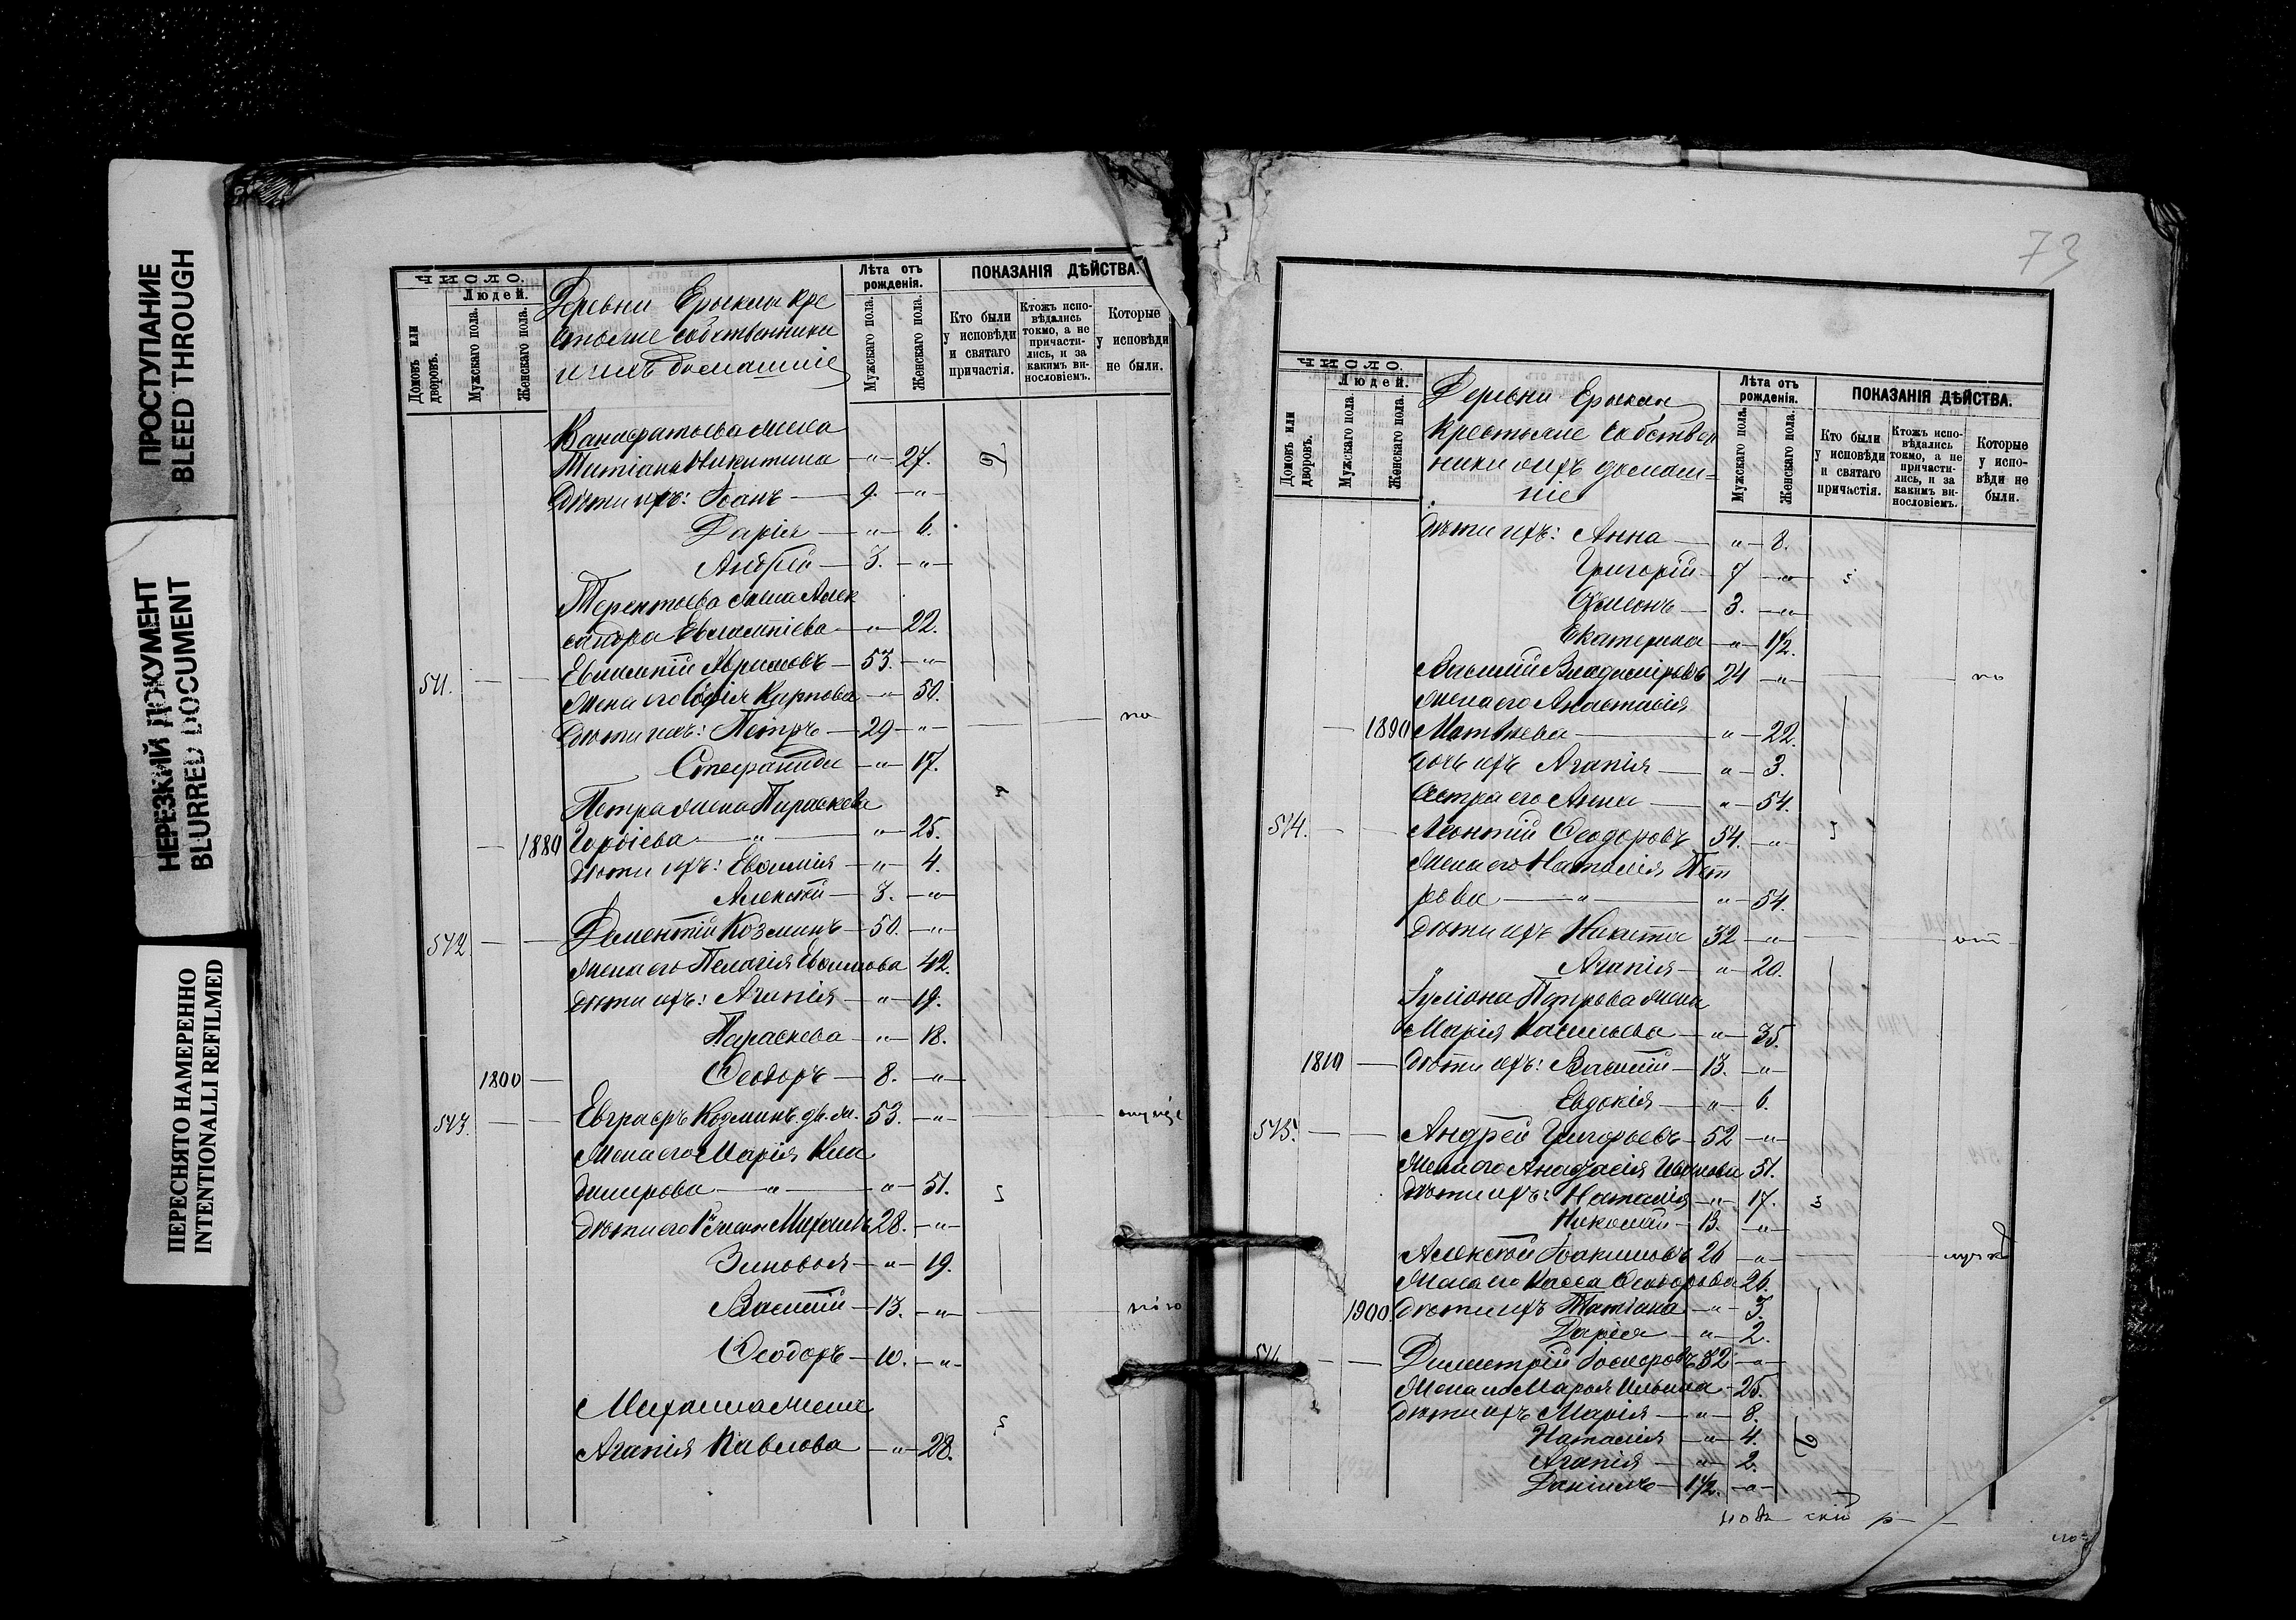 ПРОСТУПАНИЕ
BLEED THROUGH
НЕРЕЗКИЙ ДОКУМЕНТ
BLURRED DOCUMENT
ПЕРЕСНЯТО НАМЕРЕННО
INTENTIONALLI REFILMED
ЧИСЛО.
Людей.
Домовъ или дворовъ.
Мужскаго пола.
Женскаго пола.
Деревни Ерыкли кре
стьяне собственники
и ихъ домашніе
Лѣта отъ рожденія.
Мужскаго пола.
Женскаго пола.
ПОКАЗАНІЯ ДѢЙСТВА.
Кто были у исповѣди и святаго причастія.
Ктожъ исповѣдались токмо, а не причастились, и за какимъ винословіемъ.
Которые у исповѣди не были.
жена
Никитина — " — 27.
Дѣти ихъ: Іоанъ — 9. — "
Дарія — " — 6.
Андрей — 3. — "
Терентьева жена Алек
сандра Евлампіева — " — 22.
541. Евлампій — 53. — "
Жена его Софія Карпова — " — 50.
Дѣти ихъ: Петръ — 29 — "
Стефанида — " — 17.
Петра жена Параскева
1880 Гордіева — " — " — 25.
Дѣти ихъ: Евфимія — " — 4.
Алексѣй — 3. — "
542 Дементій Козминъ — 50. — "
Жена его Пелагія Евфимова 42.
Дѣти ихъ: Агапія — " — 19.
Параскева — " — 18.
1800 Ѳеодоръ — 8. — "
543. Евграфъ Козминъ 53. — "
Жена его Марія
— " — " — 51.
Дѣти его Михаилъ 28. — "
Зиновья — " — 19.
Василій — 13. — "
Ѳеодоръ — 10. — "
Михаила жена
Агапія Павлова — " — 28.
73
ЧИСЛО.
Людей.
Домовъ или дворовъ.
Мужскаго пола.
Женскаго пола.
Деревни Ерыкли
крестьяне собствен
ники и ихъ домаш-
ніе
Лѣта отъ рожденія.
Мужскаго пола.
Женскаго пола.
ПОКАЗАНІЯ ДѢЙСТВА.
Кто были у исповѣди и святаго причастія.
Ктожъ исповѣдались токмо, а не причастились, и за какимъ винословіемъ.
Которые у исповѣди не были.
Дѣти ихъ: Анна — " — 8.
Григорій — 7 — "
3. — "
Екатерина — " — 1/2.
Василій Владиміровъ 24 — "
Жена его Анастасія
1890 Матвѣева — " — 22.
Дочь ихъ Агапія — " — 3.
Сестра его Анна — " — 54.
544. Леонтій Ѳеодоровъ 54. — "
Жена его Наталія Пет
рова — " — " — 54.
Дѣти ихъ Никита 32 — "
Агапія — " — 20.
Петрова жена
Марія Васильева — " — 35.
1810 Дѣти ихъ: Василій — 13. — "
Евдокія — " — 6.
545. Андрей Григорьевъ — 52 — "
Жена его Иванова 51.
Дѣти ихъ: Наталія — " — 17.
Николай — 13. — "
Алексѣй Іоакимовъ 26 — "
Жена его Ѳеодорова 26.
1900. Дѣти ихъ Татіана — " — 3.
Дарія — " — 2.
Димитрій Іосифовъ 32 — "
Жена его Марья Ильина — 25.
Дѣти ихъ Марія — " — 8.
Наталія — " — 4.
Агапія — " — 2.
Даніилъ — 1/2. — "